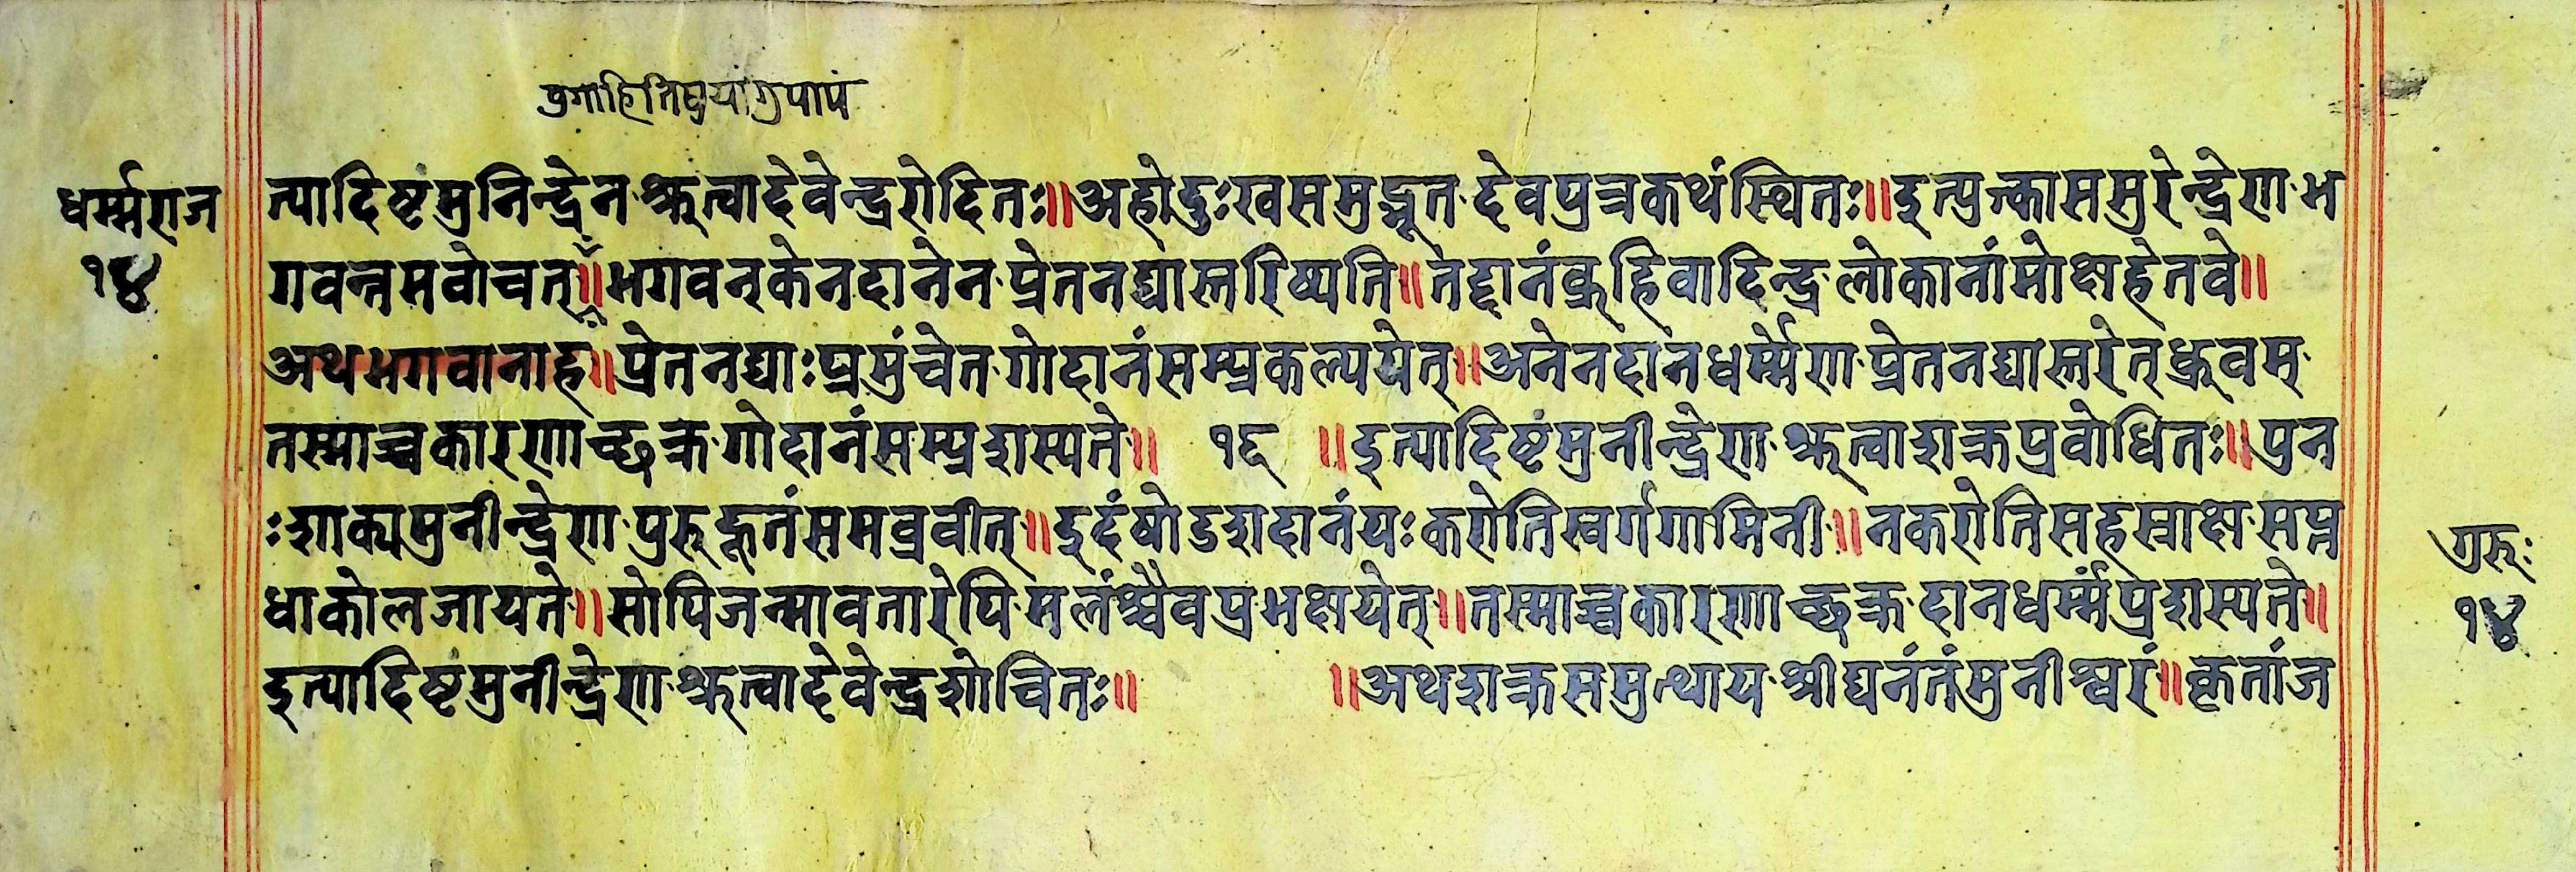 धर्म्मराज
१४
त्यादिष्टं मुनिन्द्रेन श्रुत्वा देवेन्द्र रोदितः॥ अहो दुःख समुद्भूत देवपुत्र कथं स्थितः॥ इत्युक्त्वा स सुरेन्द्रेण भ
गवन्तमवोचत्॥ भगवन् केन दानेन प्रेतनद्यास्तरिष्यति॥ तद्दानं ब्रूहि वादिन्द्र लोकानां मोक्षहेतवे॥
अथ भगवानाह॥ प्रेतनद्याः प्रमुंचेत गोदानं सम्प्रकल्पयेत्॥ अनेन दानधर्म्मेण प्रेतनद्यास्तरेत् ध्रुवम्
तस्माच्च कारणाच्छक्र गोदानं सम्प्रशस्यते॥ १६ ॥ इत्यादिष्टं मुनीन्द्रेण श्रुत्वा शक्र प्रवोधितः॥ पुन
ः शाक्यमुनीन्द्रेण पुरुहूतं समव्रवीत्॥ इदं षोडशदानं यः करोति स्वर्गगामिनी॥ न करोति सहस्राक्ष सप्त
धा कोल जायते॥ सोपि जन्मावतारेपि मलंश्चैव प्रभक्षयेत्॥ तस्माच्च कारणाच्छक्र दानधर्म्मं प्रशस्यते॥
इत्यादिष्टं मुनीन्द्रेण श्रुत्वा देवेन्द्र शोचितः॥ ॥ अथ शक्र समुत्थाय श्रीघनं तं मुनीश्वरं॥ कृतांज
गुरुः
१४